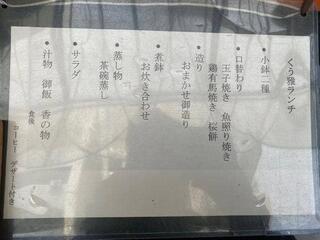 くう雅ランチ
●小鉢二種
●口替わり
玉子焼き　魚照り焼き
鶏有馬焼き　桜餅
●造り
おまかせ御造り
●煮鉢
お炊き合わせ
●蒸し物
茶碗蒸し
●サラダ
●汁物　御飯　香の物
食後
コーヒー、デザート付き